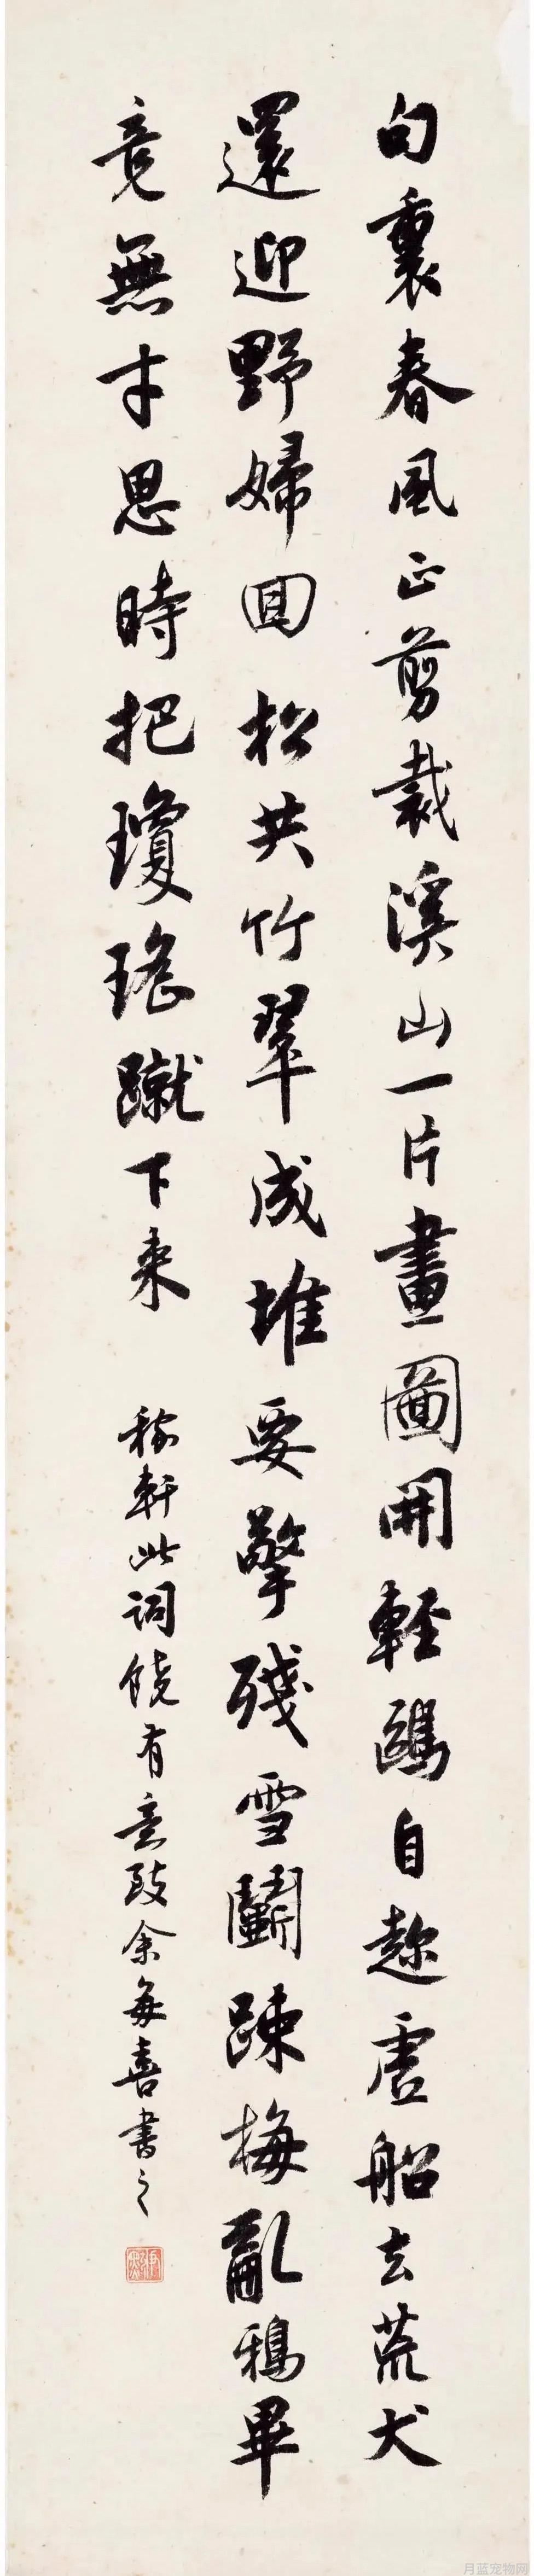 句裏春風正剪裁溪山一片畫圖開輕鷗自趁虛船去荒犬
還迎野婦回松共竹翠成堆要擎殘雪鬬疎梅亂鴉畢
竟無才思時把瓊瑤蹴下來
稼軒此詞饒有意致余每喜書之
月蓝宠物网